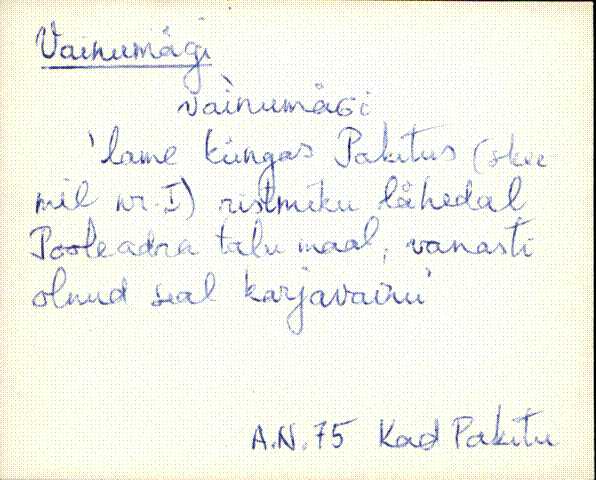 Vainumägi
vàinumäGi
'lame küngas Pakitus (skee
mil nr. I) ristmiku lähedal
Pooleadra talu maal, vanasti
olnud seal karjavainu'
A.N. 75 Kad Pakitu